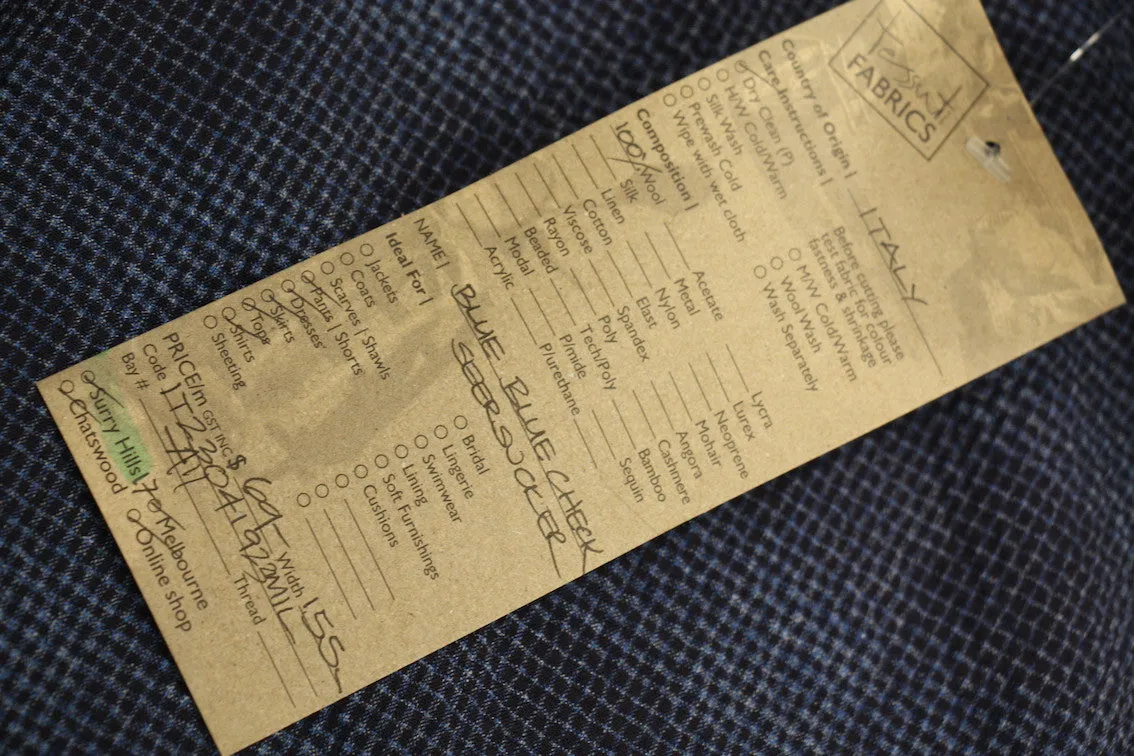 Tessuti
FABRICS
Country of Origin | ITALY
Care Instructions |
Dry Clean (P)
H/W Cold/Warm
Silk Wash
Prewash Cold
Wipe with wet cloth
Before cutting please
test fabric for colour
fastness & shrinkage
M/W Cold/Warm
Wool Wash
Wash Separately
Composition |
100% Wool
Silk
Linen
Cotton
Viscose
Rayon
Beaded
Modal
Acrylic
Acetate
Metal
Nylon
Elast
Spandex
Poly
Tech/Poly
P/mide
P/urethane
Lycra
Lurex
Neoprene
Mohair
Angora
Cashmere
Bamboo
Sequin
NAME | BLUE BLUE CHECK
SEERSUCKER
Ideal For |
Jackets
Coats
Scarves | Shawls
Pants | Shorts
Dresses
Skirts
Tops
Shirts
Sheeting
Bridal
Lingerie
Swimwear
Lining
Soft Furnishings
Cushions
PRICE/m GST INC $ 69- Width 155
Code IT230419223MIL
Bay # Thread
Surry Hills 70 Melbourne
Chatswood Online shop